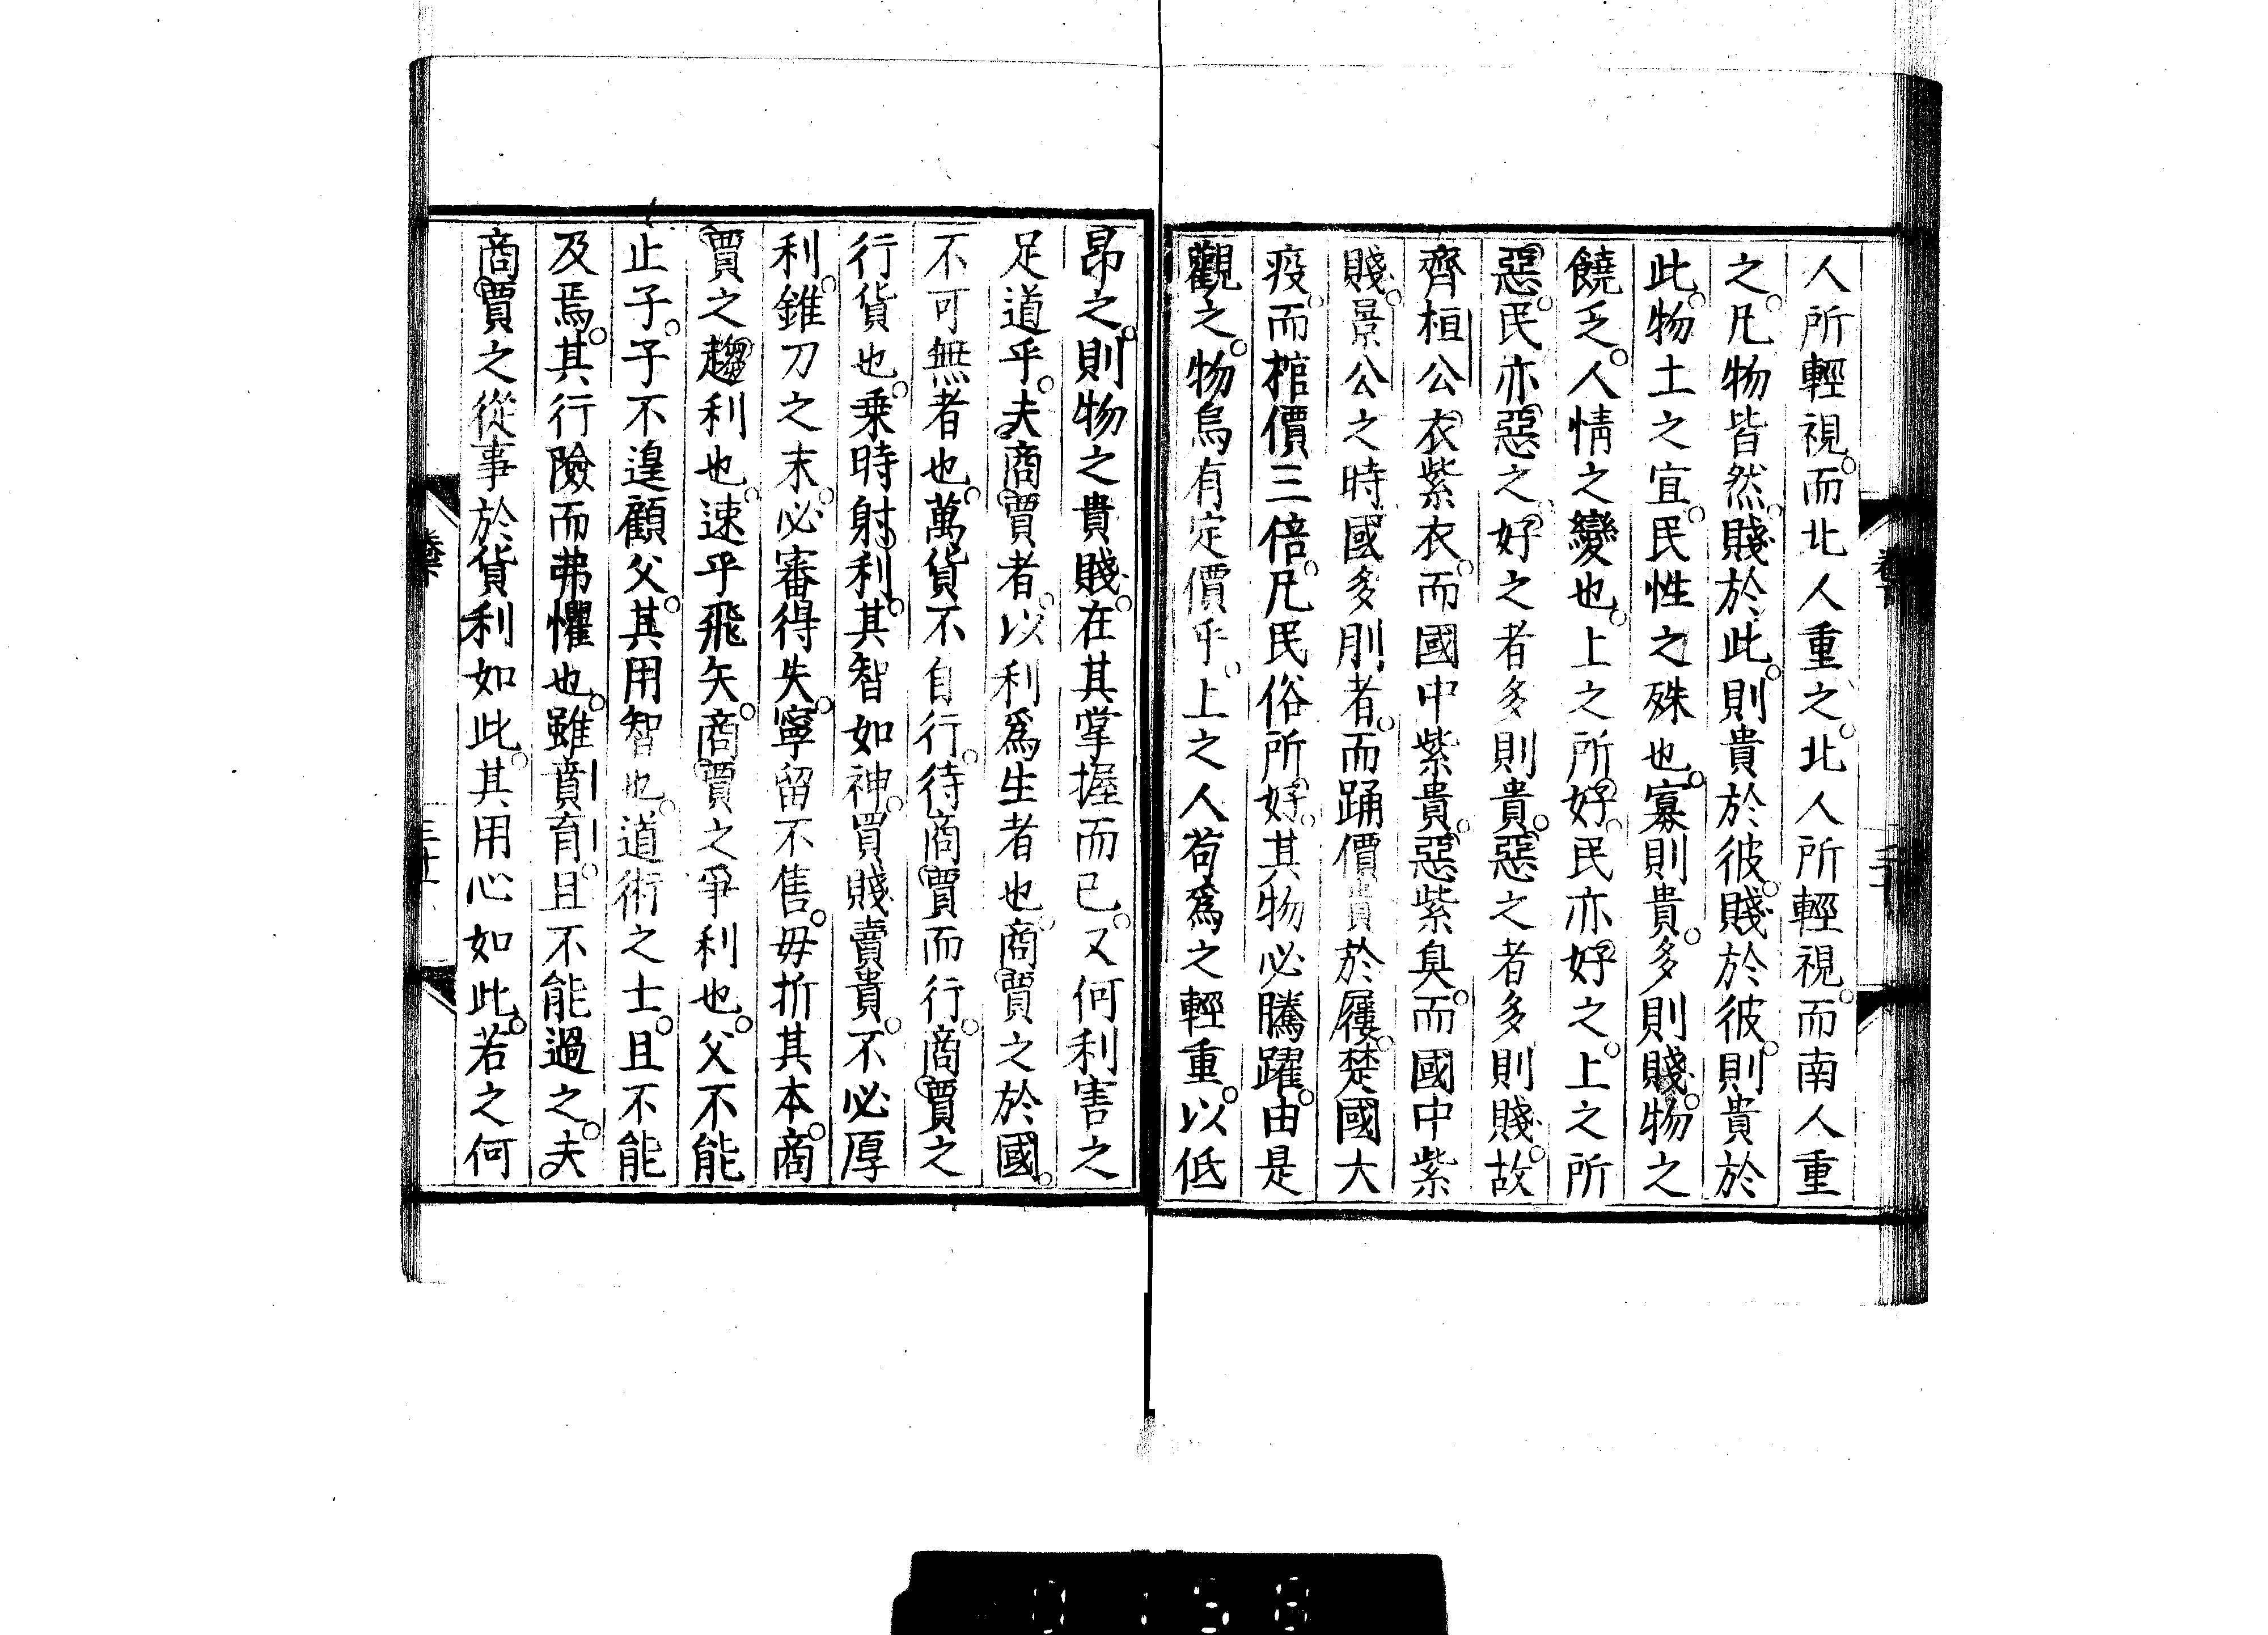 人所輕視。而北人重之。北人所輕視。而南人重
之。凡物皆然。賤於此。則貴於彼。賤於彼。則貴於
此。物土之宜。民性之殊也。寡則貴。多則賤。物之
饒乏。人情之變也。上之所好。民亦好之。上之所
惡。民亦惡之。好之者多則貴。惡之者多則賤。故
齊桓公衣紫衣。而國中紫貴。惡紫臭。而國中紫
賤。景公之時國多刖者。而踊價貴於屨。楚國大
疫。而棺價三倍。凡民俗所好。其物必騰躍。由是
觀之。物烏有定價乎。上之人苟爲之輕重。以低
昂之。則物之貴賤。在其掌握而已。又何利害之
足道乎。夫商賈者。以利爲生者也。商賈之於國。
不可無者也。萬貨不自行。待商賈而行。商賈之
行貨也。乗時射利。其智如神。買賤賣貴。不必厚
利。錐刀之末。必審得失。寧留不售。毋折其本。商
賈之趨利也。速乎飛矢。商賈之爭利也。父不能
止子。子不遑顧父。其用智也。道術之士。且不能
及焉。其行險而弗懼也。雖賁育。且不能過之。夫
商賈之從事於貨利如此。其用心如此。若之何